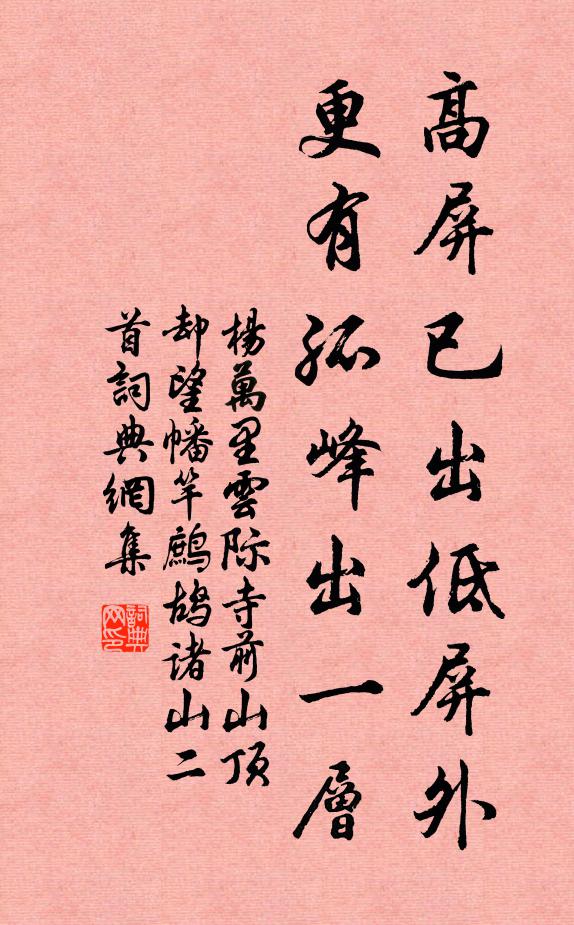 高屏已出低屏外
更有孤峰出一層
楊萬里雲际寺前山頂
却望幡竿鷓鴣诸山二
首詞典網集
詞典网印